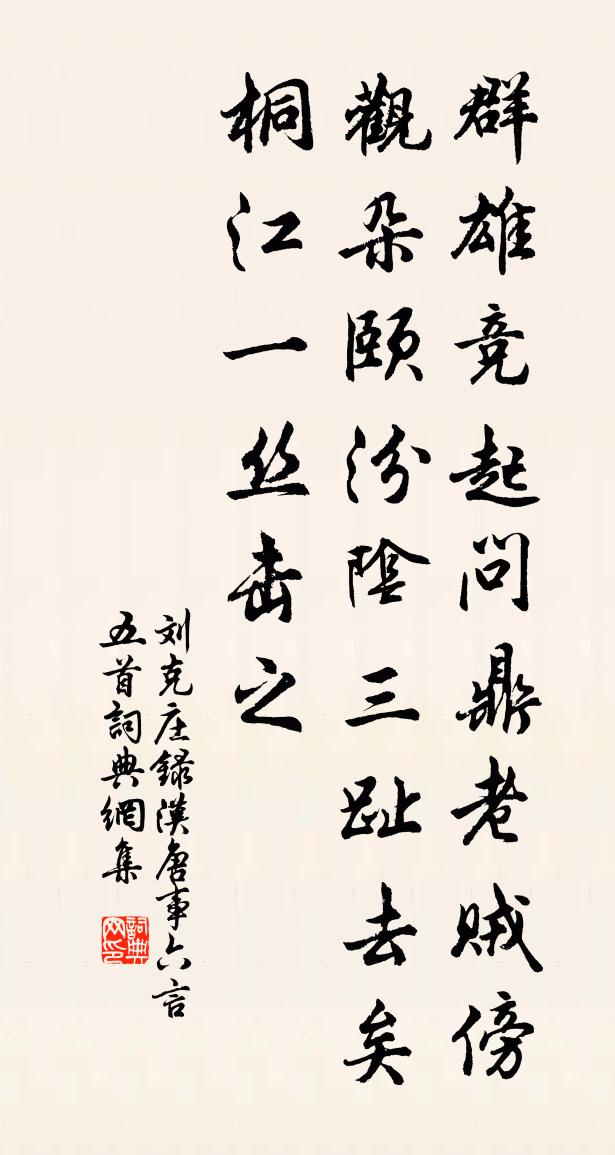 群雄竞起问鼎老贼傍
觀朵颐汾陰三趾去矣
桐江一丝击之
刘克庄錄漢唐事六言
五首詞典網集
詞典网印